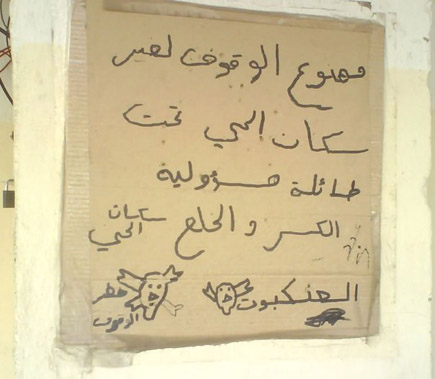 ممنوع الوقوف لغير
سكان الحي تحت
طائلة مسؤولية
الكسر و الخلع
سكان الحي
العنكبوت
خطر الوقوف